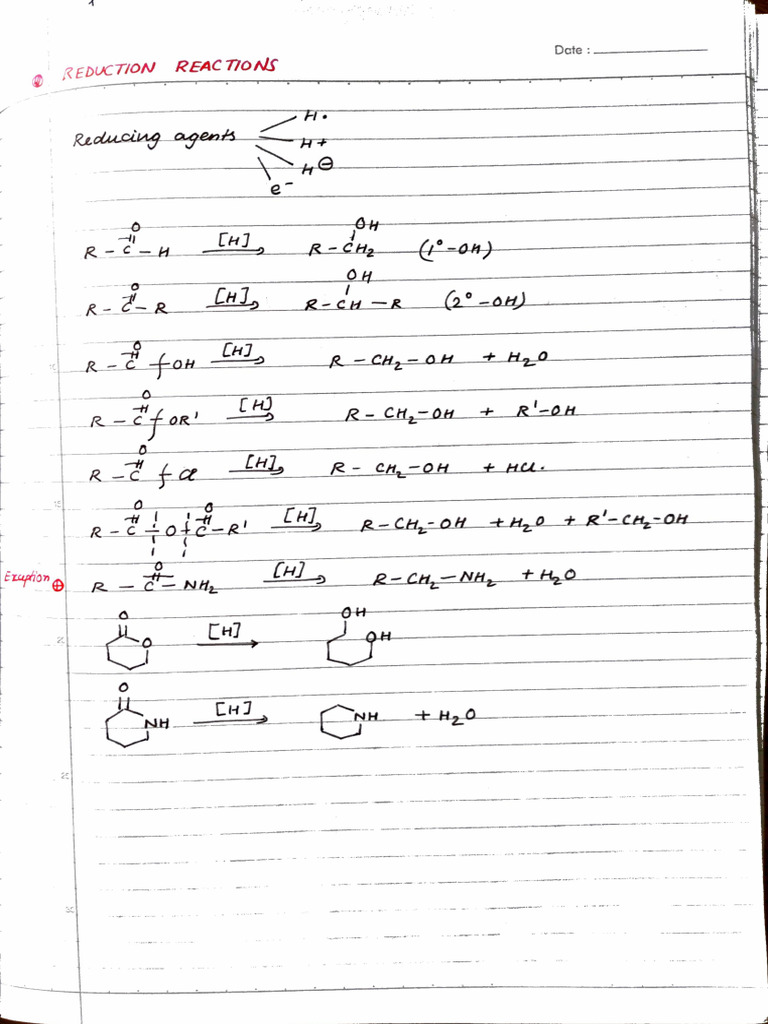 Date :
REDUCTION REACTIONS
H•
Reducing agents
H+
H⊖
e−
R − C(=O) − H [H]→ R − CH2(OH) (1° −OH)
R − C(=O) − R [H]→ R − CH(OH) − R (2° −OH)
R − C(=O) ∫ OH [H]→ R − CH2 − OH + H2O
R − C(=O) ∫ OR' [H]→ R − CH2 − OH + R' − OH
R − C(=O) ∫ Cl [H]→ R − CH2 − OH + HCl.
R − C(=O) − O − C(=O) − R' [H]→ R − CH2 − OH + H2O + R' − CH2 − OH
Exception ⊕ R − C(=O) − NH2 [H]→ R − CH2 − NH2 + H2O
O O [H]→ OH OH
O NH [H]→ NH + H2O